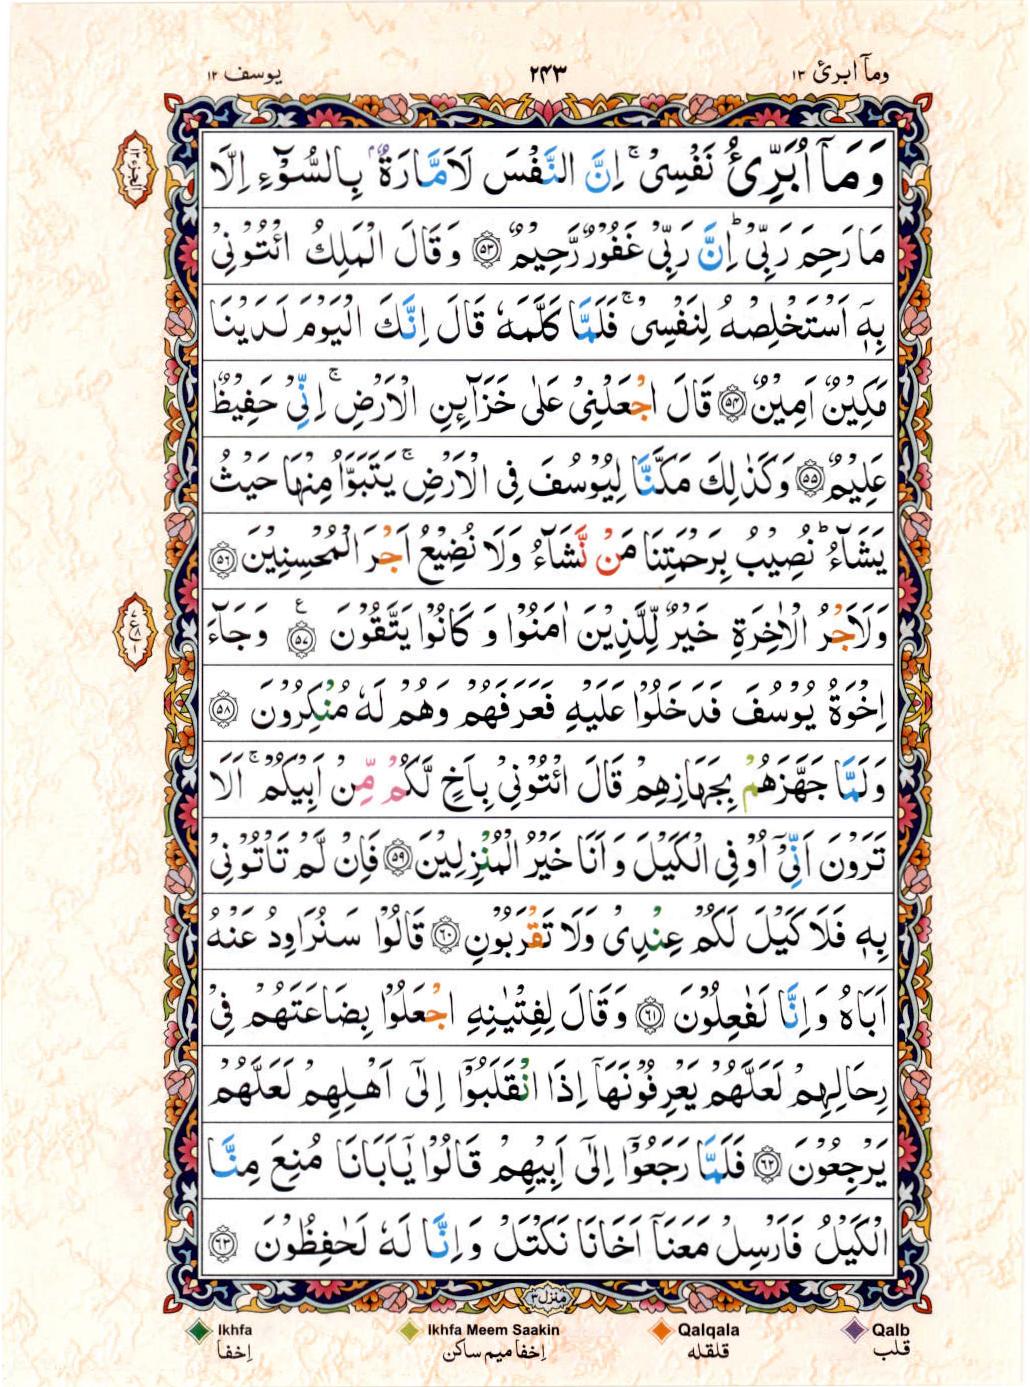 وماۤ ابرئ ١٣
٢٤٣
يوسف ١٢
وَمَاۤ اُبَرِّئُ نَفْسِىْ ۚ اِنَّ النَّفْسَ لَاَمَّارَةٌۢ بِالسُّوْٓءِ اِلَّا
مَا رَحِمَ رَبِّىْ ؕ اِنَّ رَبِّىْ غَفُوْرٌ رَّحِيْمٌ ﴿۵۳﴾ وَقَالَ الْمَلِكُ ائْتُوْنِىْ
بِهٖۤ اَسْتَخْلِصْهُ لِنَفْسِىْ ۚ فَلَمَّا كَلَّمَهٗ قَالَ اِنَّكَ الْيَوْمَ لَدَيْنَا
مَكِيْنٌ اَمِيْنٌ ﴿۵۴﴾ قَالَ اجْعَلْنِىْ عَلٰى خَزَآٮِٕنِ الْاَرْضِ ۚ اِنِّىْ حَفِيْظٌ
عَلِيْمٌ ﴿۵۵﴾ وَكَذٰلِكَ مَكَّنَّا لِيُوْسُفَ فِى الْاَرْضِ ۚ يَتَبَوَّاُ مِنْهَا حَيْثُ
يَشَآءُ ؕ نُصِيْبُ بِرَحْمَتِنَا مَنْ نَّشَآءُ وَلَا نُضِيْعُ اَجْرَ الْمُحْسِنِيْنَ ﴿۵۶﴾
وَلَاَجْرُ الْاٰخِرَةِ خَيْرٌ لِّلَّذِيْنَ اٰمَنُوْا وَكَانُوْا يَتَّقُوْنَ ﴿۵۷﴾ ع وَجَآءَ
اِخْوَةُ يُوْسُفَ فَدَخَلُوْا عَلَيْهِ فَعَرَفَهُمْ وَهُمْ لَهٗ مُنْكِرُوْنَ ﴿۵۸﴾
وَلَمَّا جَهَّزَهُمْ بِجَهَازِهِمْ قَالَ ائْتُوْنِىْ بِاَخٍ لَّكُمْ مِّنْ اَبِيْكُمْ ۚ اَلَا
تَرَوْنَ اَنِّىْۤ اُوْفِى الْكَيْلَ وَاَنَا خَيْرُ الْمُنْزِلِيْنَ ﴿۵۹﴾ فَاِنْ لَّمْ تَاْتُوْنِىْ
بِهٖ فَلَا كَيْلَ لَكُمْ عِنْدِىْ وَلَا تَقْرَبُوْنِ ﴿۶۰﴾ قَالُوْا سَنُرَاوِدُ عَنْهُ
اَبَاهُ وَاِنَّا لَفٰعِلُوْنَ ﴿۶۱﴾ وَقَالَ لِفِتْيٰنِهِ اجْعَلُوْا بِضَاعَتَهُمْ فِىْ
رِحَالِهِمْ لَعَلَّهُمْ يَعْرِفُوْنَهَاۤ اِذَا انْقَلَبُوْۤا اِلٰٓى اَهْلِهِمْ لَعَلَّهُمْ
يَرْجِعُوْنَ ﴿۶۲﴾ فَلَمَّا رَجَعُوْۤا اِلٰٓى اَبِيْهِمْ قَالُوْا يٰۤاَبَانَا مُنِعَ مِنَّا
الْكَيْلُ فَاَرْسِلْ مَعَنَاۤ اَخَانَا نَكْتَلْ وَاِنَّا لَهٗ لَحٰفِظُوْنَ ﴿۶۳﴾
منزل ٣
Ikhfa
اِخفا
Ikhfa Meem Saakin
اِخفا ميم ساكن
Qalqala
قلقله
Qalb
قلب